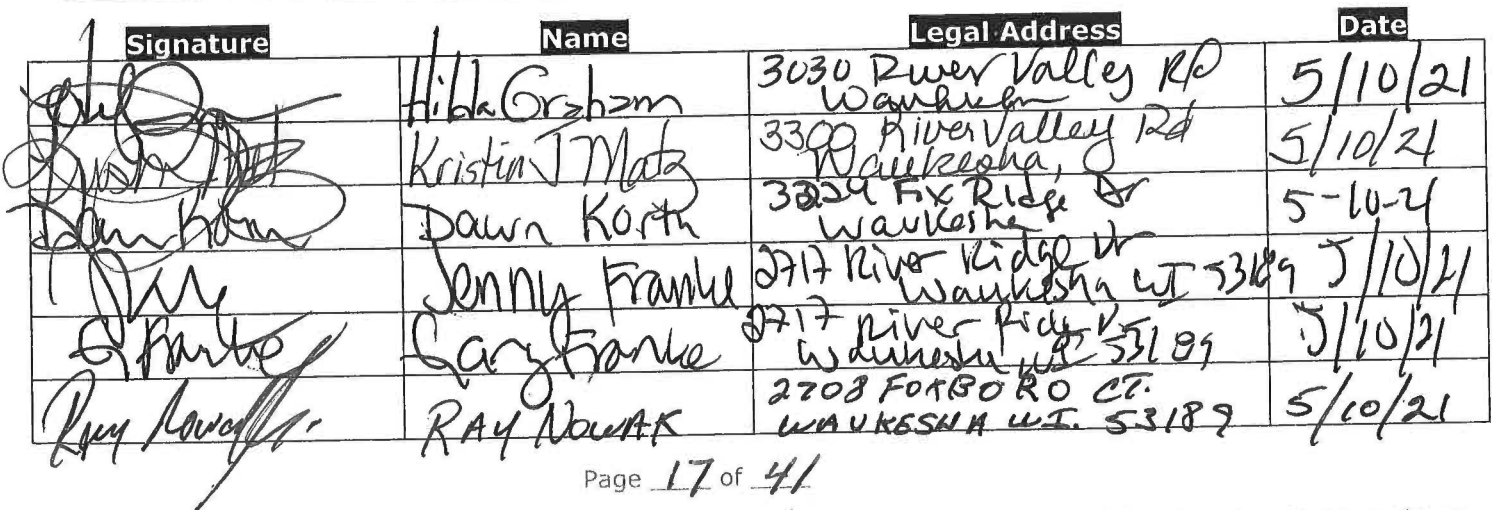 Signature Name Legal Address Date
Hilda Graham 3030 River Valley Rd 5/10/21
Waukesha
Kristin J Matz 3300 River Valley Rd 5/10/21
Waukesha,
Dawn Korth Dawn Korth 3224 Fox Ridge Dr 5-10-21
Waukesha
Jenny Franke 2717 River Ridge Dr 5/10/21
Waukesha WI 53189
G Franke Gary Franke 2717 River Ridge Dr 5/10/21
Waukesha WI 53189
Ray Nowak RAY NOWAK 2708 FOXBORO CT. 5/10/21
WAUKESHA WI. 53189
Page 17 of 41